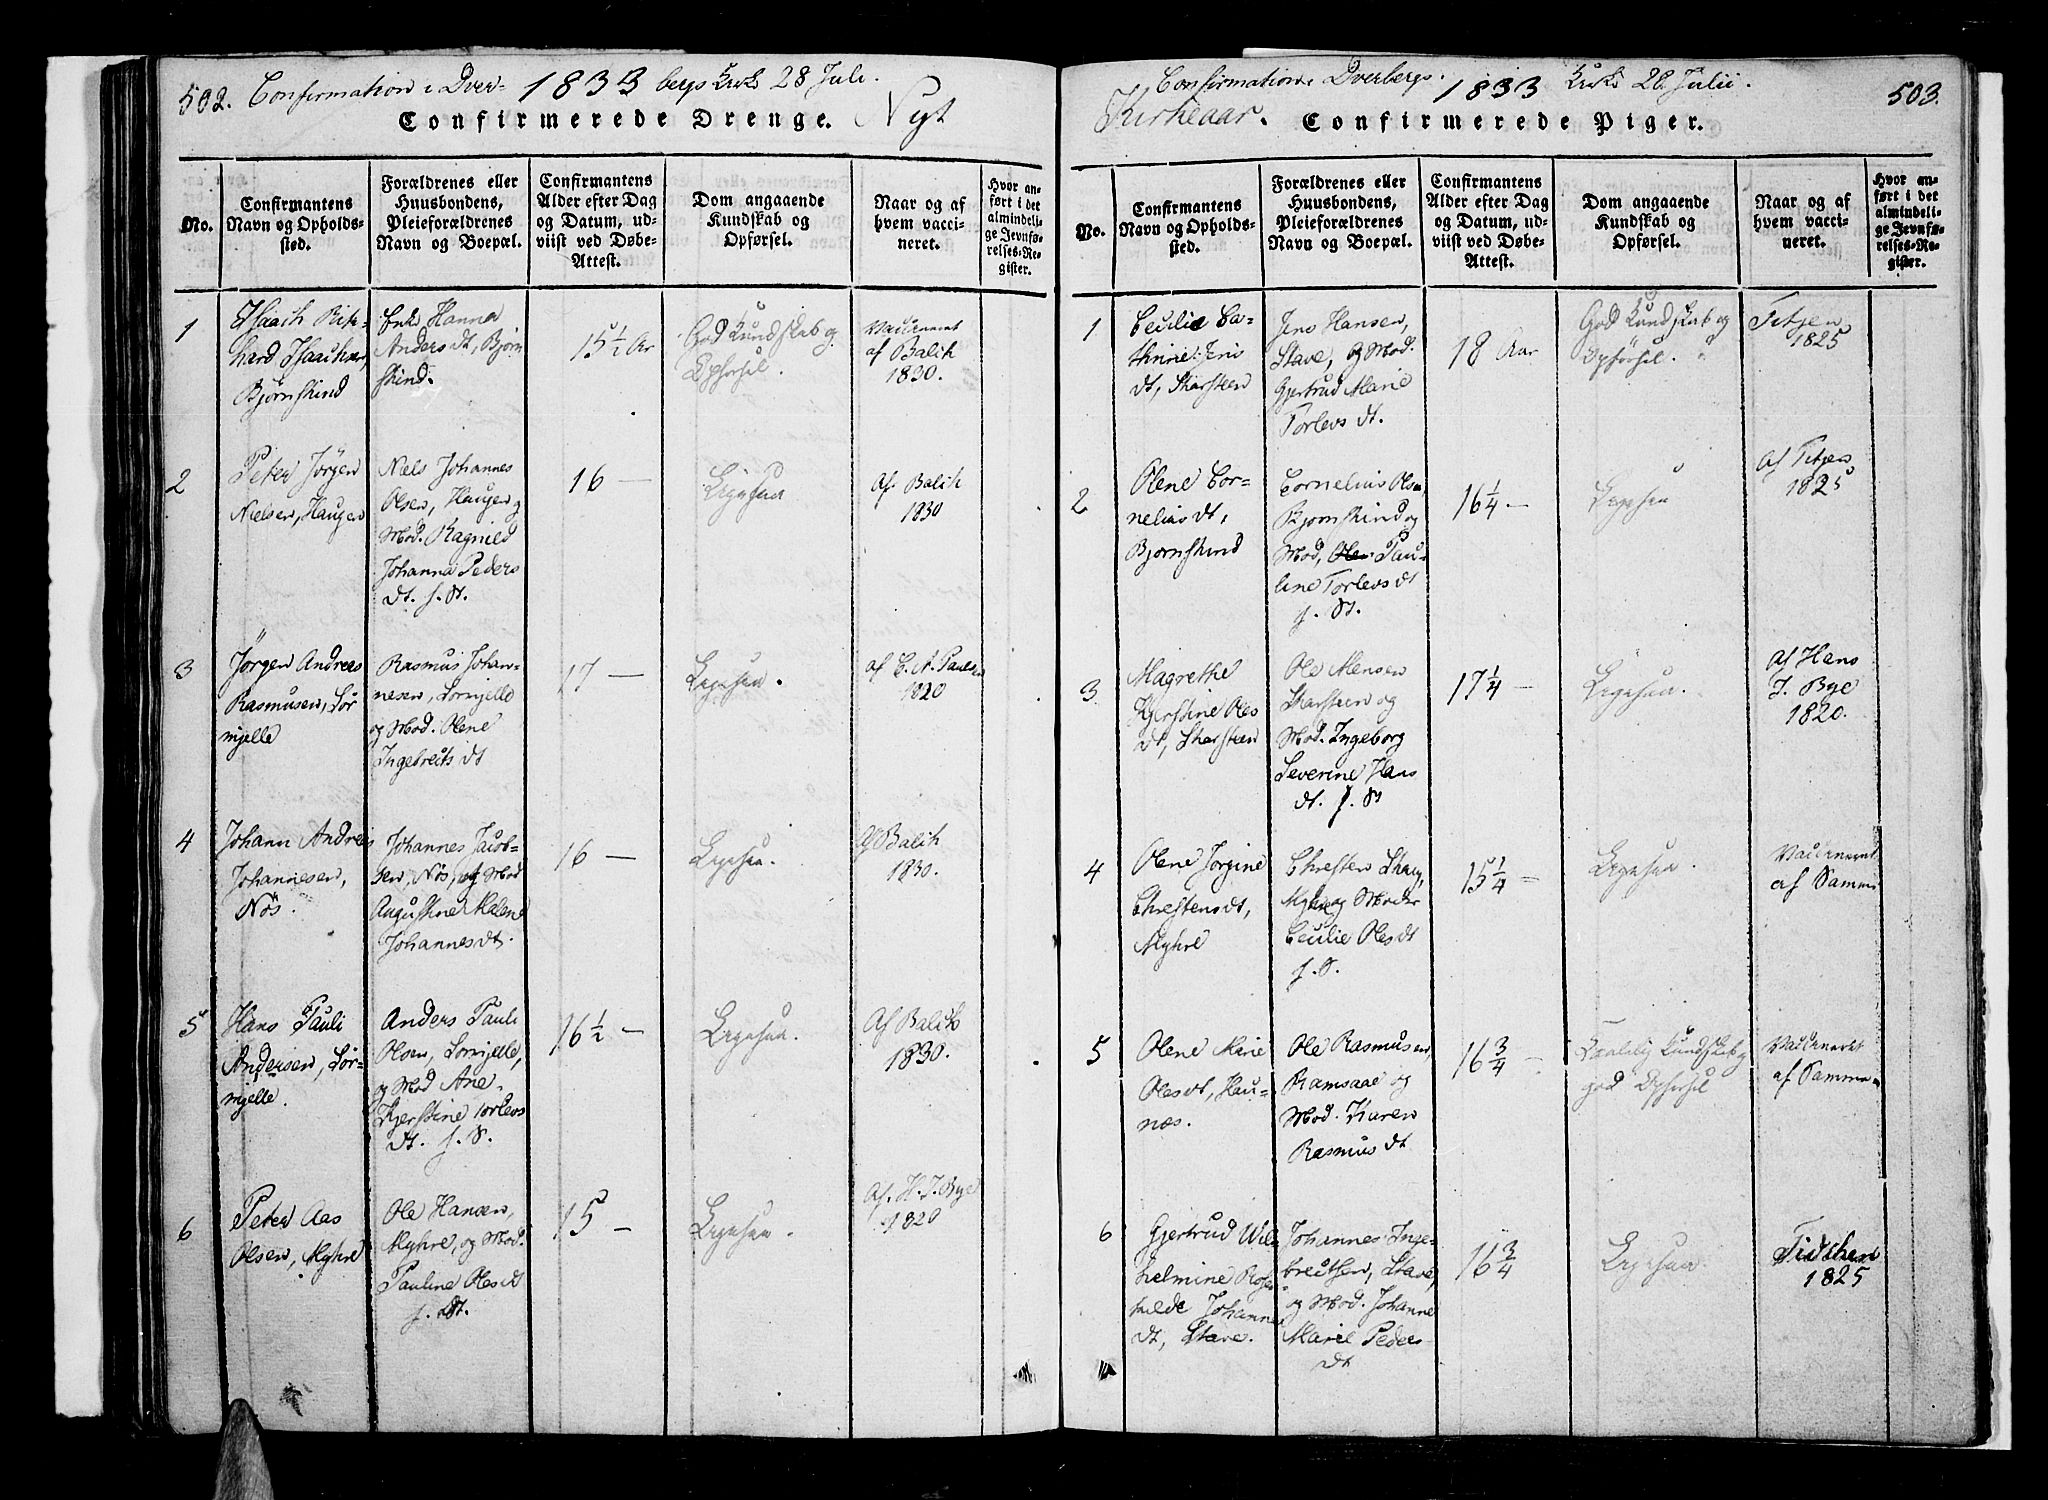 502. Confirmation i Dver- 1833 bergs Kirke 28 Juli.
Confirmerede Drenge. Nyt
No.
Confirmantens Navn og Opholds- sted.
Forældrenes eller Huusbondens, Pleieforældrenes Navn og Boepæl.
Confirmantens Alder efter Dag og Datum, ud- viist ved Døbe- Attest.
Dom angaaende Kundskab og Opførsel.
Naar og af hvem vacci- neret.
Hvor an- ført i det almindeli- ge Jevnfø- relses-Re- gister.
1
Isaach Rik-
hard Isaachsen,
Bjørnskind
Enke Hanna
Anders dt, Bjørn
skind.
15 1/2 Ar
God Kundskab og
Opførsel.
Vaccineret
af Balich
1830.
2
Peter Jørgen
Nielsen, Haugen
Niels Johannes
Olsen, Haugen og
Mod. Ragnild
Johanna Peders
dt.
16 —
Ligesaa
Af Balich
1830
3
Jørgen Andreas
Rasmusen, Sør
mjelle
Rasmus Johan-
nesen, Sørmjelle
og Mod. Olene
Ingebreits dt
17 —
Ligesaa.
af C. A. Paulsen
1820
4
Johan Andreas
Johannesen,
Nös.
Johannes Jacob-
sen, Nös, og Mod
Augustine Malene
Johannes dt.
16 —
Ligesaa.
af Balich
1830.
5
Hans Pauli
Andersen, Sør-
mjelle.
Anders Pauli
Olsen, Sørmjelle,
og Mod Ane
Kjerstine Torlevs
dt. f. S.
16 1/2 —
Ligesaa.
Af Balich
1830.
6
Peter Aas
Olsen, Myhre
Ole Hansen,
Myhre, og Mod.
Pauline Oles dt
15 —
Ligesaa.
Af. H. J. Bye
1820
Confirmation i Dverbergs 1833 Kirke 28 Julii. 503.
Kirkeaar. Confirmerede Piger.
No.
Confirmantens Navn og Opholds- sted.
Forældrenes eller Huusbondens, Pleieforældrenes Navn og Boepæl.
Confirmantens Alder efter Dag og Datum, ud- viist ved Døbe- Attest.
Dom angaaende Kundskab og Opførsel.
Naar og af hvem vacci- neret.
Hvor an- ført i det almindeli- ge Jevnfø- relses-Re- gister.
1
Cecilie Ca-
thrine Jens
dt, Skarsteen
Jens Hansen,
Stave, og Mod.
Gjertrud Marie
Torlevs dt.
18 Aar
God Kundskab og
Opførsel.
Titjen
1825
2
Olene Cor-
nelius dt,
Bjørnskind
Cornelius Olsen
Bjørnskind og
Mod, Pau-
line Torlevs dt
16 1/4 —
Ligesaa
Af Titjen
1825
3
Magrethe
Kjerstine Oles
dt, Skarsteen
Ole Mensen
Skarsteen og
Mod. Ingeborg
Severine Hans
dt.
17 1/4 —
Ligesaa.
Af Hans
J. Bye
1820.
4
Olene Jørgine
Christens dt,
Myhre
Christen
Myhre og Moder
Cecilie Oles dt
f. S.
15 1/4 —
Ligesaa.
Vaccineret
af Samme
5
Olene Marie
Oles dt, Hau-
næs.
Ole Rasmusen,
Ramsaae og
Mod. Karen
Rasmus dt
16 3/4 —
Taalelig Kundskab og
god Opførsel
Vaccineret
af Samme
6
Gjertrud Wil-
helmine
Johannes
dt, Stave.
Johannes Inge-
breitsen, Stave,
og Mod. Johanne
Marie Peders
dt
16 3/4
Ligesaa.
Tidchen
1825